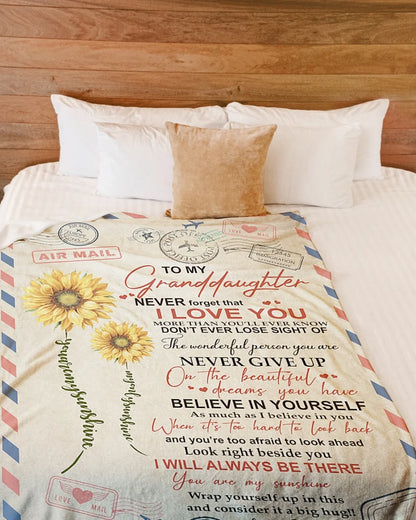 AIR MAIL
TO MY
Granddaughter
NEVER forget that
I LOVE YOU
MORE THAN YOU'LL EVER KNOW
DON'T EVER LOSE SIGHT OF
The wonderful person you are
NEVER GIVE UP
On the beautiful
dreams you have
BELIEVE IN YOURSELF
As much as I believe in you
When it's too hard to look back
and you're too afraid to look ahead
Look right beside you
I WILL ALWAYS BE THERE
You are my sunshine
Wrap yourself up in this
and consider it a big hug!!
you are my sunshine
my only sunshine
LOVE MAIL